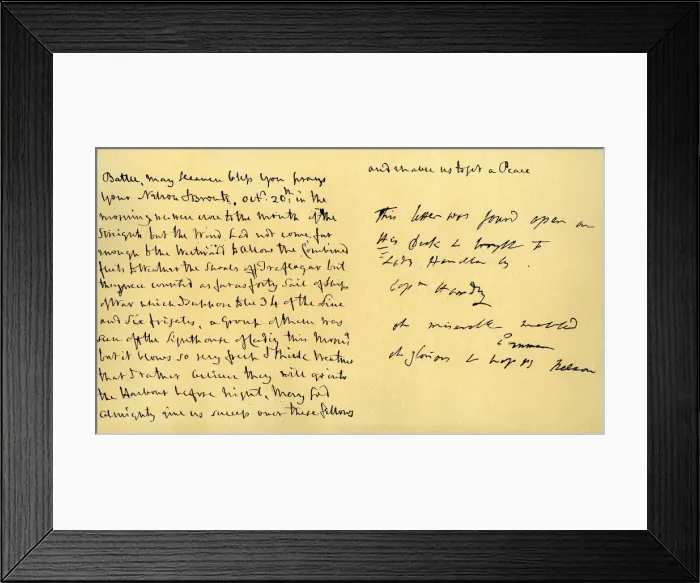 Battle, may Heaven bless you prays
your Nelson & Bronte. Octr. 20th in the
morning we were close to the mouth of the
Streights but the Wind had not come far
enough to the Westward to allow the Combined
fleets to Weather the Shoals off Traflagar but
they were counted as far as forty Sail of Ships
of War which I suppose to be 34 of the Line
and Six frigates, a Group of them was
seen off the Lighthouse of Cadiz this Morng
but it blows so very fresh & thick weather
that I rather believe they will go into
the Harbour before night, May God
Almighty give us success over these fellows
and enable us to get a Peace
This letter was found open on
His Desk & brought to
Lady Hamilton by
Captn Hardy
oh miserable wretched
Emma
oh glorious & happy Nelson